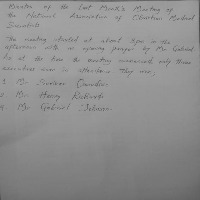 Minutes of the Last Month's Meeting of
the National Association of Christian Medical
Scientists
The meeting started at about 3pm in the
afternoon with an opening prayer by Mr Gabriel.
As at the time the meeting commenced, only three
executives were in attendance. They were;
Mr.
Mr. Henry
Mr. Gabriel